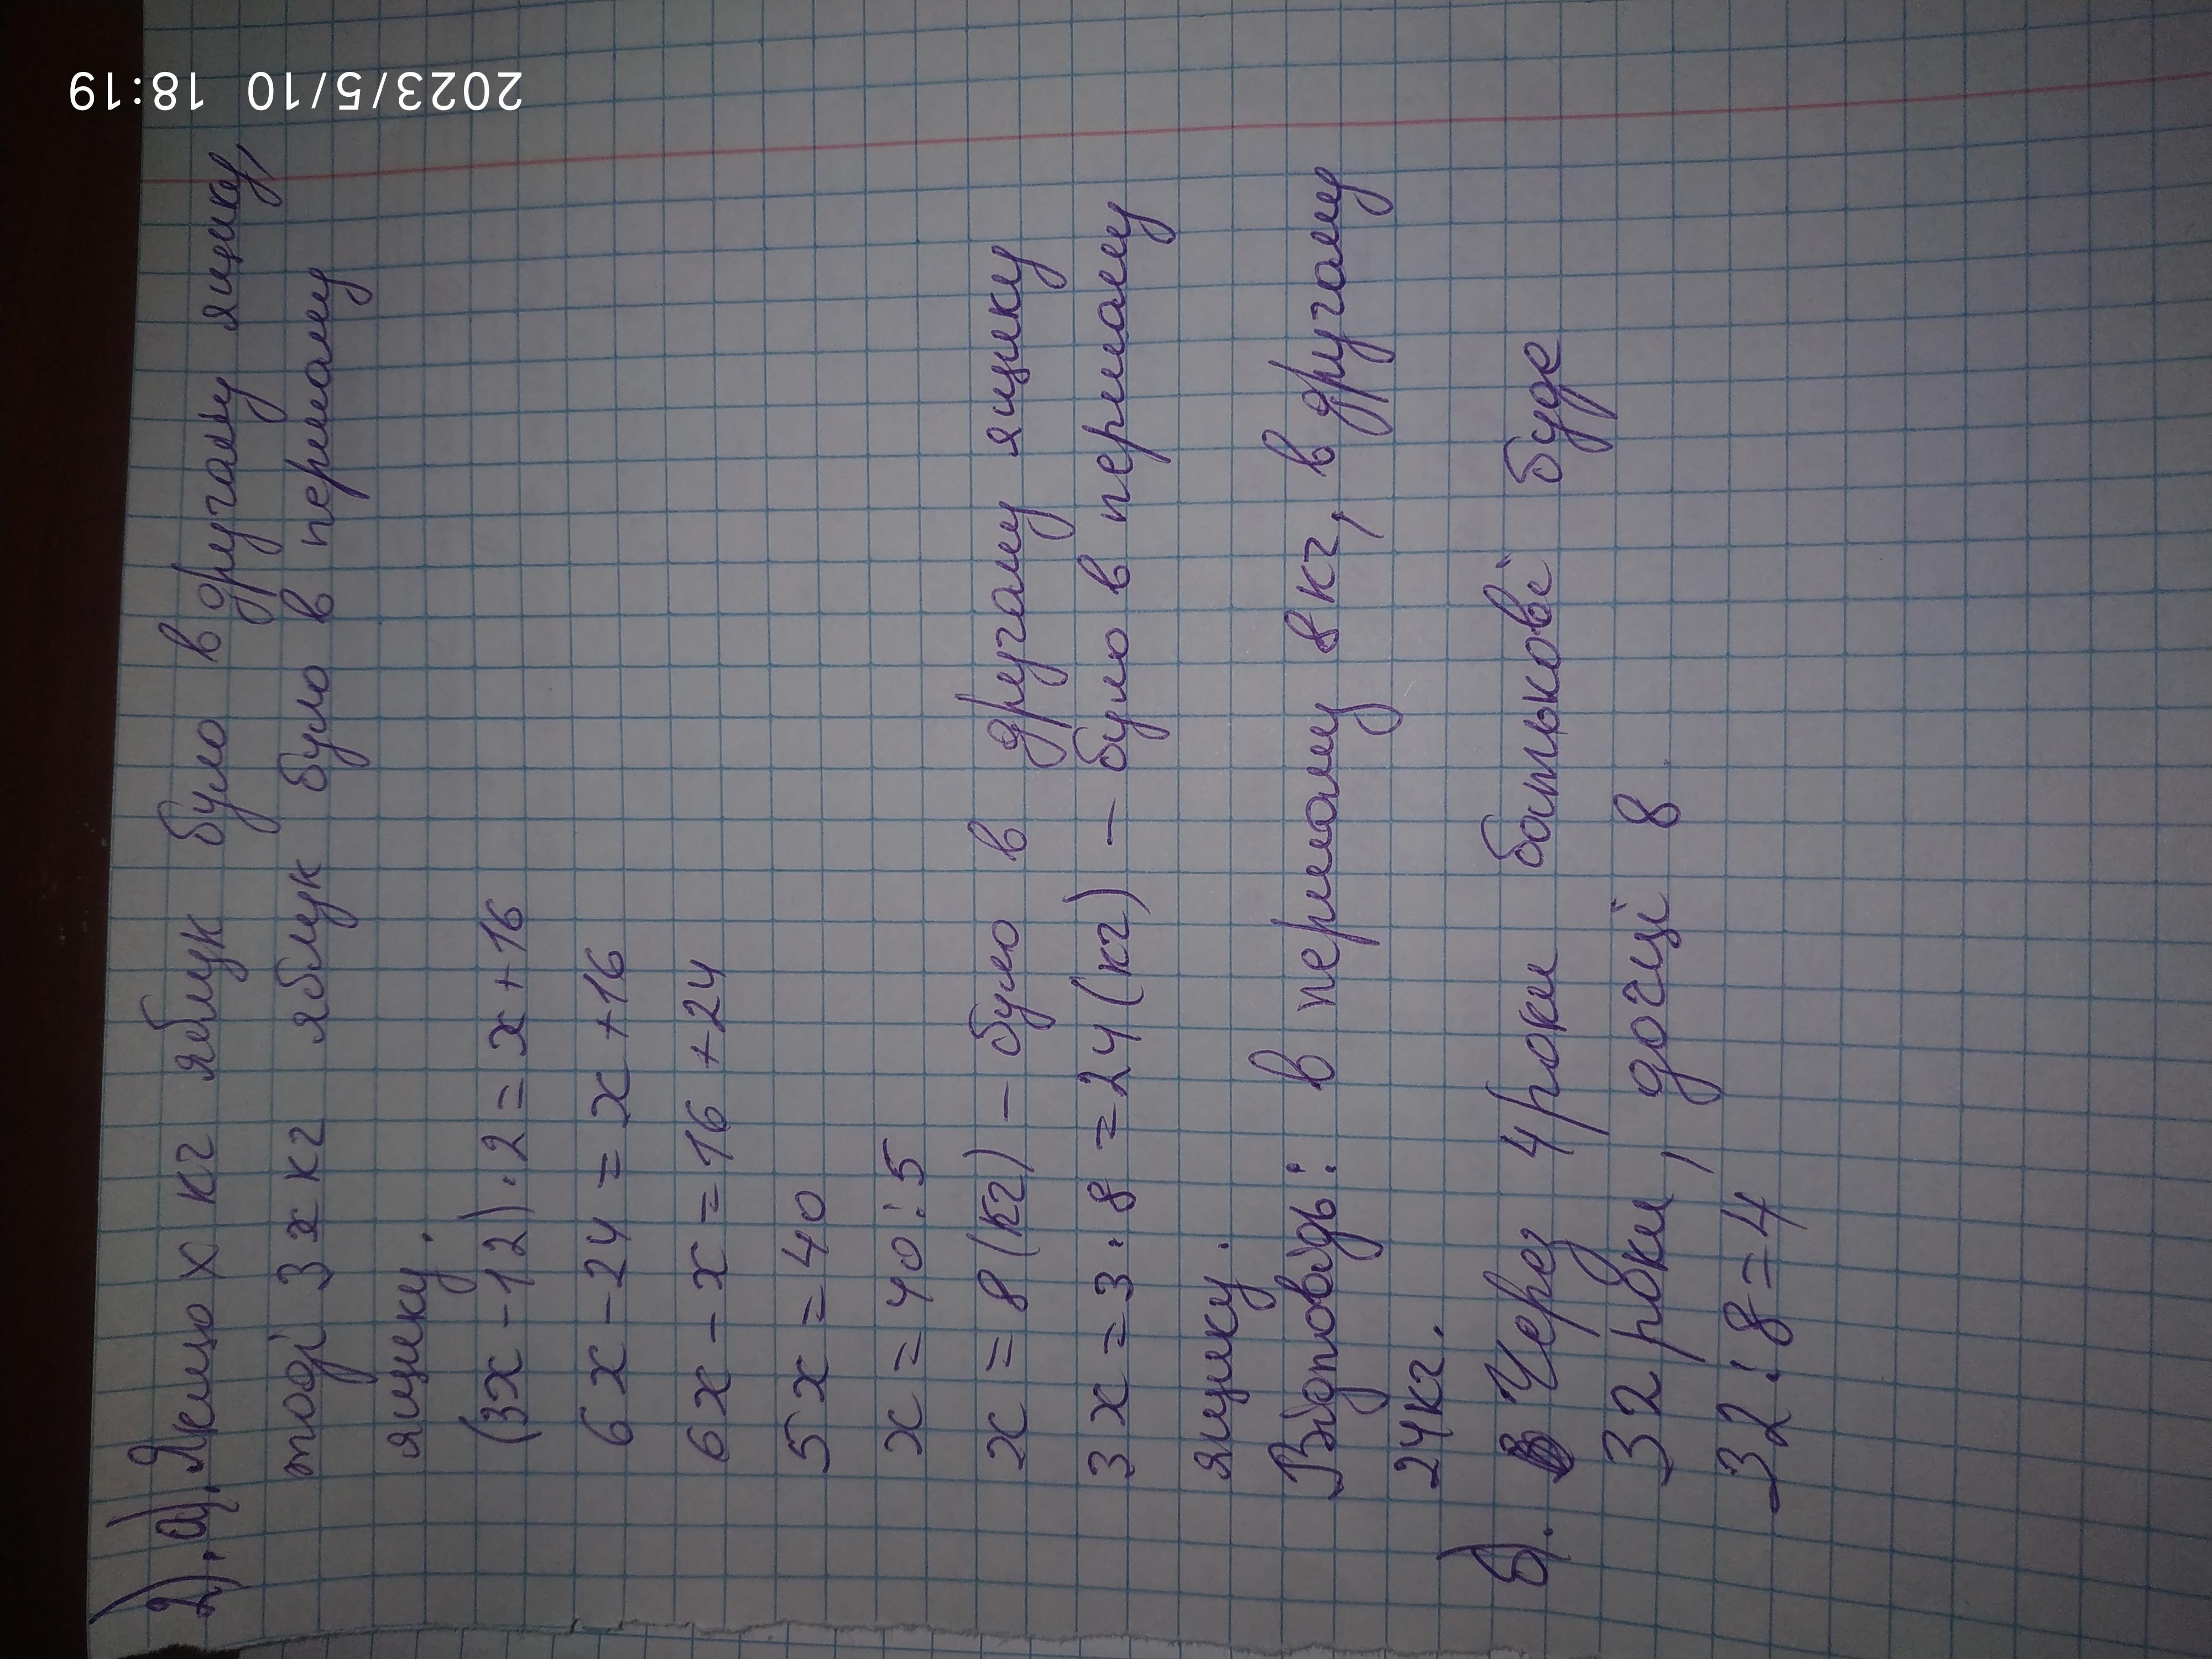 2). а). Якщо x кг яблук було в другому ящику,
тоді 3x кг яблук було в першому
ящику.
(3x-12)·2=x+16
6x-24=x+16
6x-x=16+24
5x=40
x=40:5
x=8(кг) - було в другому ящику
3x=3·8=24(кг) - було в першому
ящику.
Відповідь: в першому 8кг, в другому
24кг.
б). Через 4 роки батькові буде
32 роки, дочці 8
32:8=4
2023/5/10 18:19